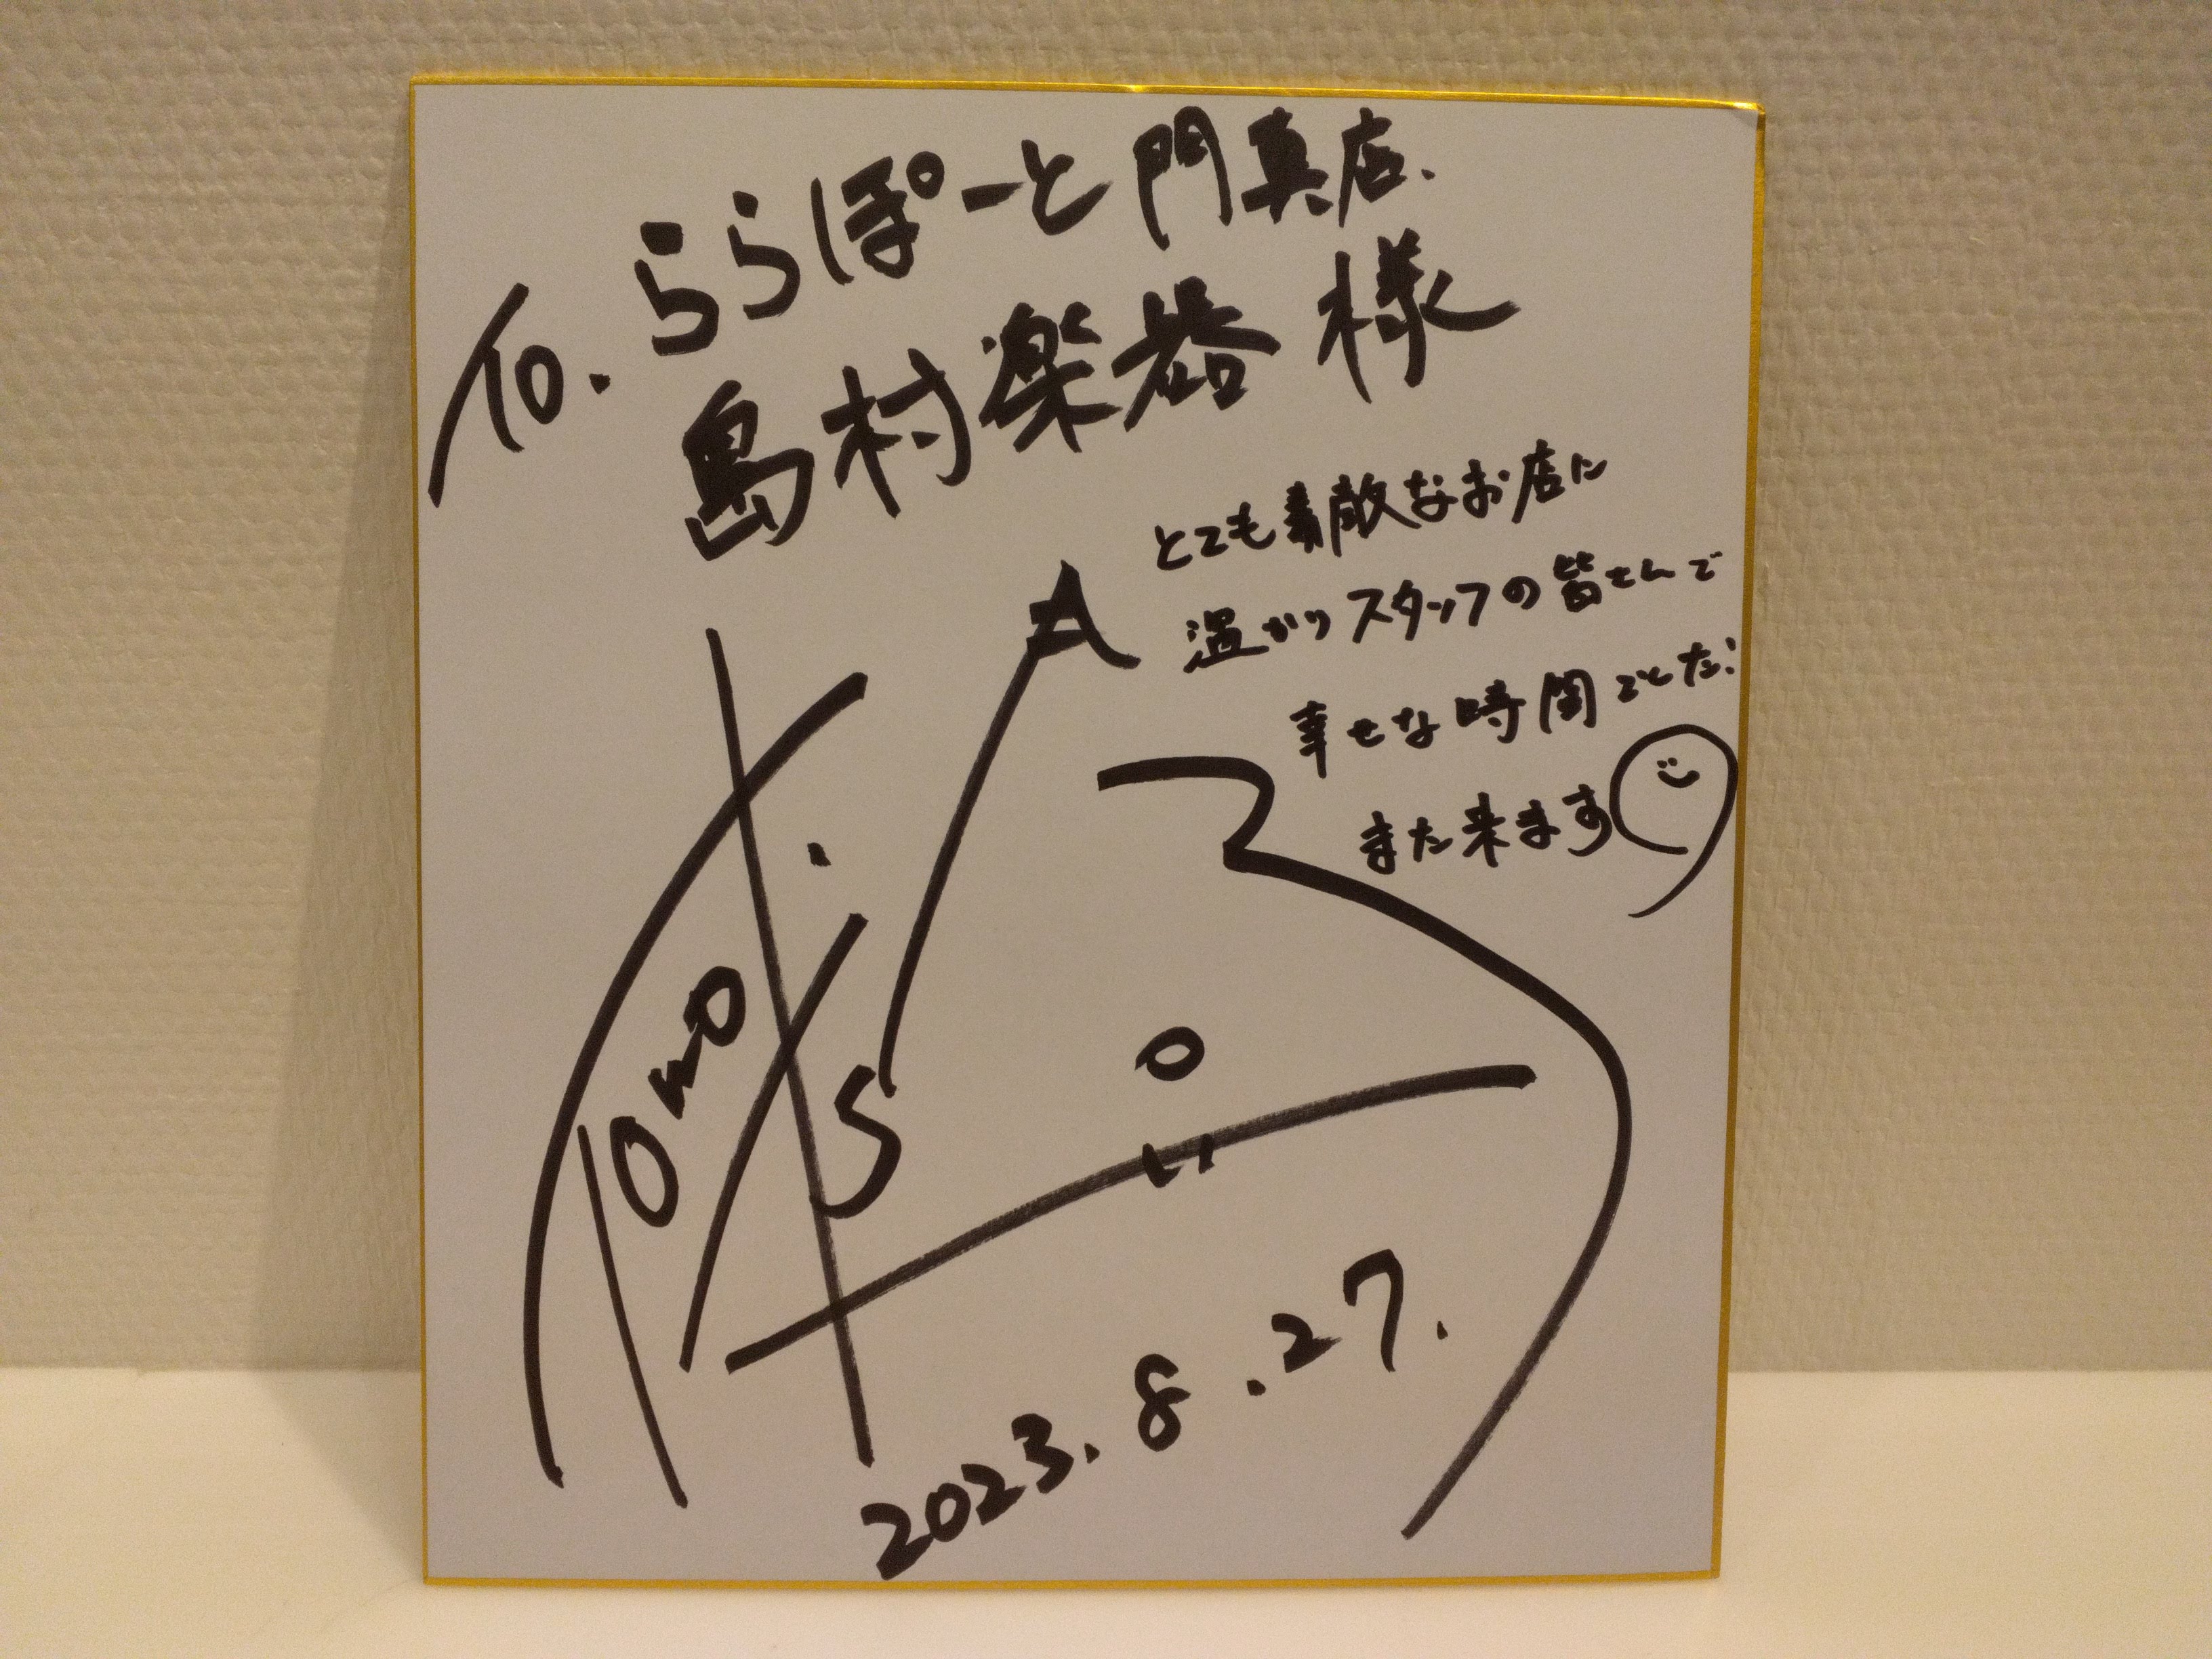 To. ららぽーと門真店.
島村楽器 様
とても素敵なお店に
温かい スタッフの皆さんで
幸せな時間でした!
また来ます
2023. 8. 27.